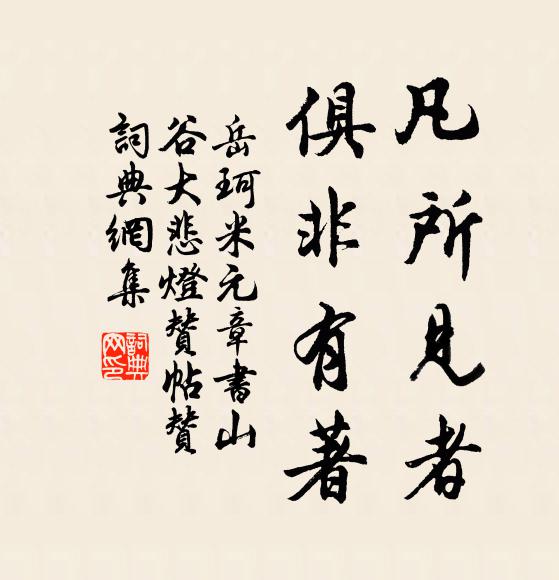 凡所見者
俱非有著
岳珂米元章書山
谷大悲燈贊帖贊
詞典網集
詞典网印